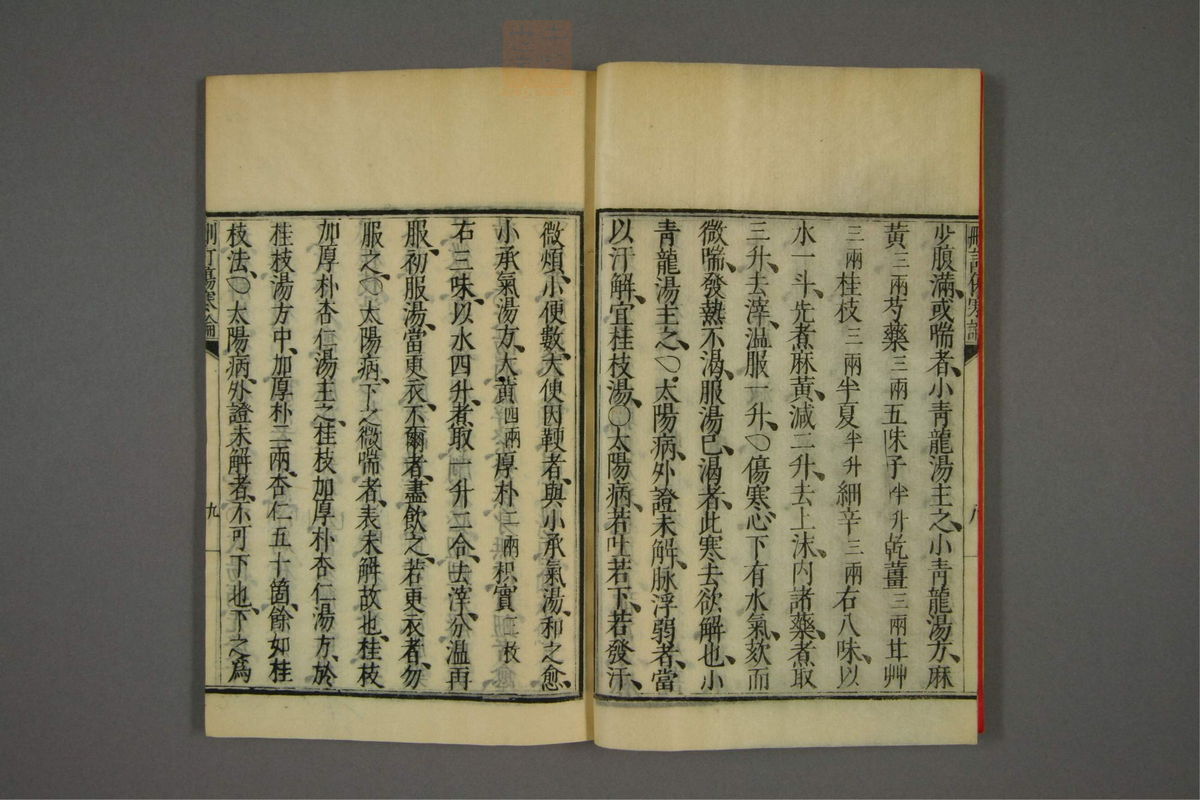 刪訂傷寒論
八
少腹滿、或喘者、小青龍湯主之、小青龍湯方、麻
黃三兩芍藥三兩五味子半升乾薑三兩甘艸
三兩桂枝三兩半夏半升細辛三兩右八味、以
水一斗、先煮麻黃、減二升、去上沫、內諸藥、煮取
三升、去滓、溫服一升、○傷寒心下有水氣、欬而
微喘、發熱不渴、服湯已渴者、此寒去欲解也、小
青龍湯主之、○太陽病、外證未解、脉浮弱者、當
以汗解、宜桂枝湯、○太陽病、若吐若下、若發汗、
微煩、小便數、大便因鞕者、與小承氣湯、和之愈、
小承氣湯方、大黃四兩厚朴二兩枳實三枚
右三味、以水四升、煮取一升二合、去滓、分溫再
服、初服湯、當更衣、不爾者、盡飲之、若更衣者、勿
服之、○太陽病、下之微喘者、表未解故也、桂枝
加厚朴杏仁湯主之、桂枝加厚朴杏仁湯方、於
桂枝湯方中、加厚朴二兩、杏仁五十箇、餘如桂
枝法、○太陽病、外證未解者、不可下也、下之爲
刪訂傷寒論
九